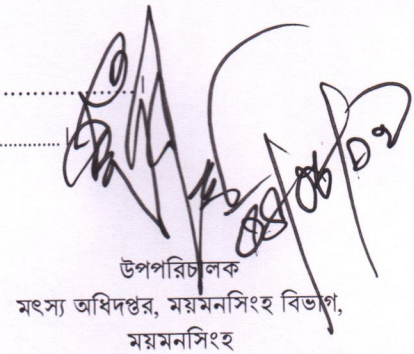 উপপরিচালক
মৎস্য অধিদপ্তর, ময়মনসিংহ বিভাগ,
ময়মনসিংহ